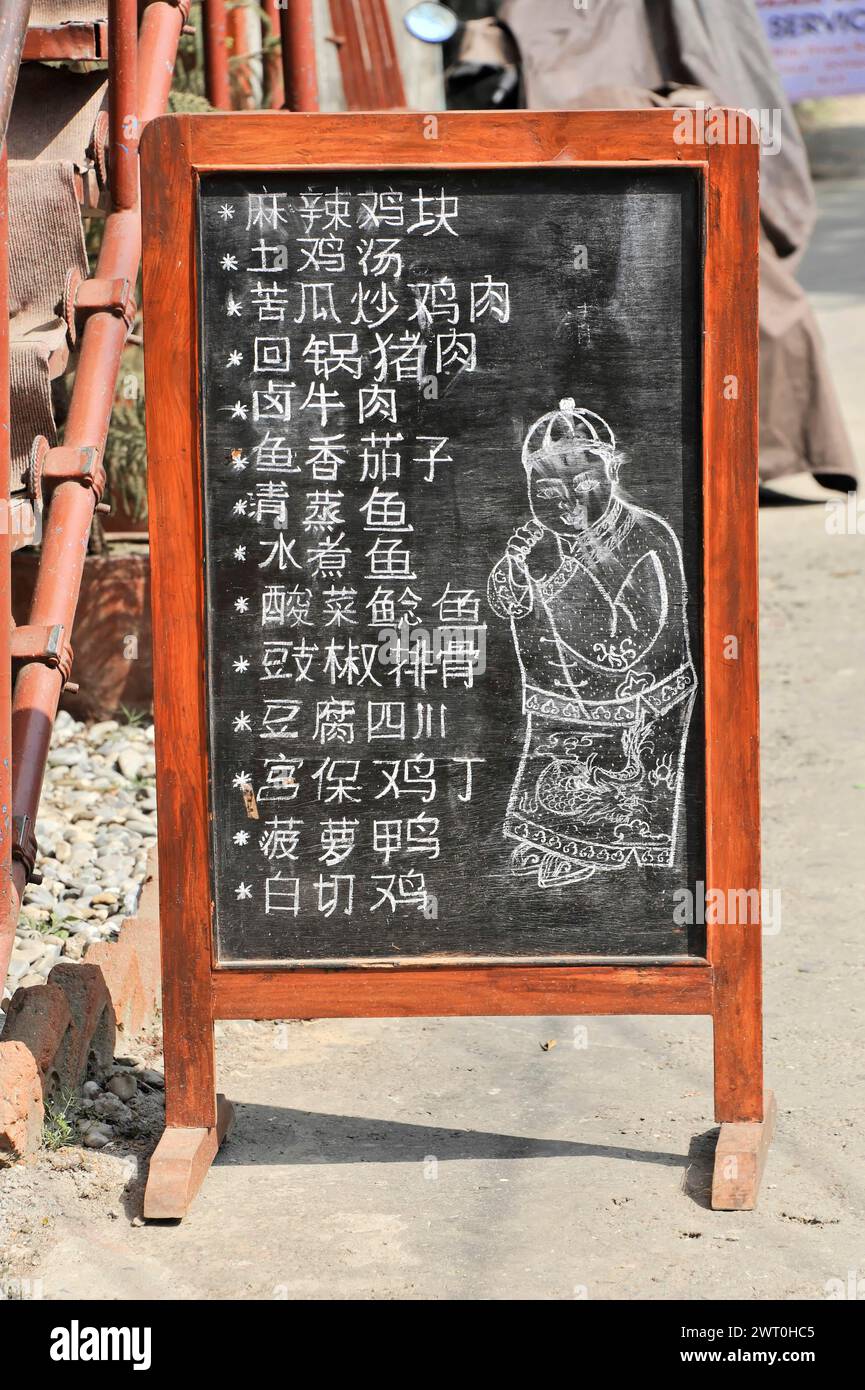 SERVIC
* 麻辣鸡块
* 土鸡汤
* 苦瓜炒鸡肉
* 回锅猪肉
* 卤牛肉
* 鱼香茄子
* 清蒸鱼
* 水煮鱼
* 酸菜鲶鱼
* 豉椒排骨
* 豆腐四川
* 宫保鸡丁
* 菠萝鸭
* 白切鸡
alamy
Image ID: 2WT0HC5
www.alamy.com